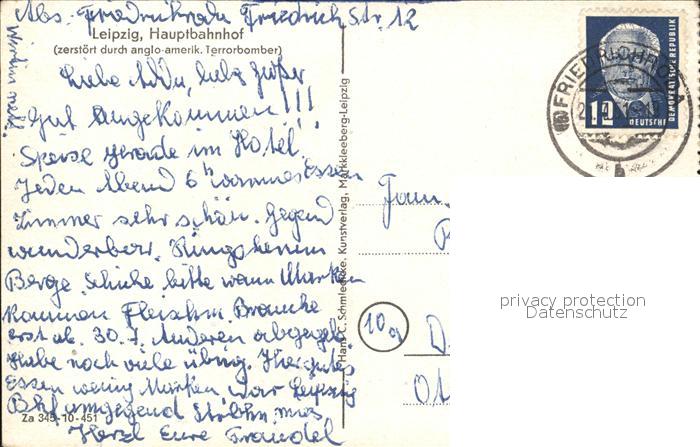 Abs. Friedrichroda Friedrichstr. 12
Leipzig, Hauptbahnhof
(zerstört durch anglo-amerik. Terrorbomber)
Liebe
Gut angekommen!!!
Speise gerade im Hotel.
Jeden Abend 6h warmes Essen
Zimmer sehr schön. Gegend
wunderbar. Ringsherum
Berge. Schicke bitte wenn Marken
kommen Fleischm. Brauche
erst ab 30.7. Anderen abgegeb.
Habe noch viele übrig. Hier gutes
Essen wenig Marken. War Leipzig
Bhf umgegend
Herzl Eure Traudel
Za 345-10-451
Hans C. Schmiedicke, Kunstverlag, Markkleeberg-Leipzig
Fam.
10a
D
FRIEDRICHRODA
12
DEUTSCHE
DEMOKRATISCHE REPUBLIK
b
privacy protection
Datenschutz